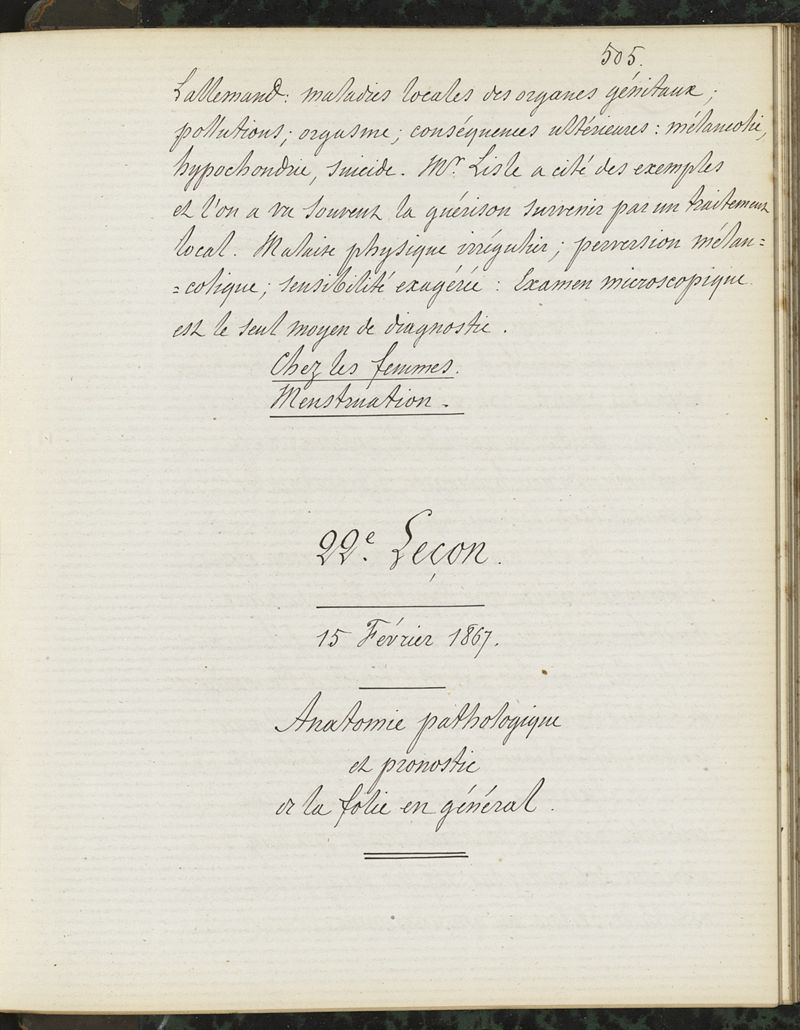 505.
Lallemand: maladies locales des organes génitaux;
pollutions; orgasme; conséquences ultérieures: mélancolie,
hypochondrie, suicide. Mr Lisle a cité des exemples
et l'on a vu souvent la guérison survenir par un traitement
local. Malaise physique irrégulier; perversion mélan=
=colique; sensibilité exagérée: Examen microscopique
est le seul moyen de diagnostic.
Chez les femmes.
Menstruation.
22e. Leçon.
15 Février 1867.
Anatomie pathologique
et pronostic
de la folie en général.